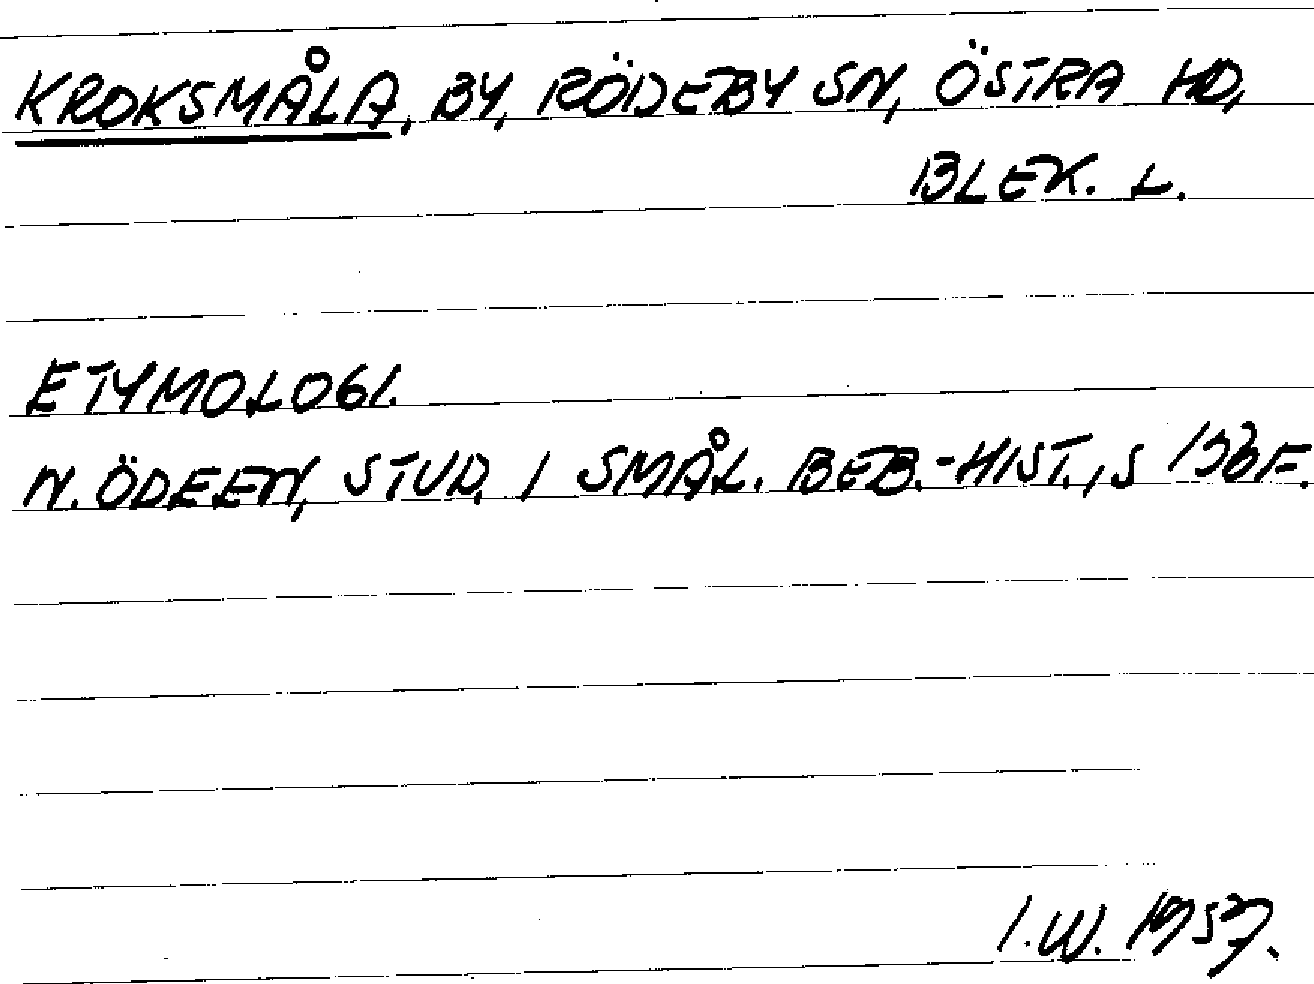 KROKSMÅLA, BY, RÖDEBY SN, ÖSTRA HD,
BLEK. L.
ETYMOLOGI.
N. ÖDEEN, STUD. I SMÅL. BEB.-HIST., S
I.W. 1957.